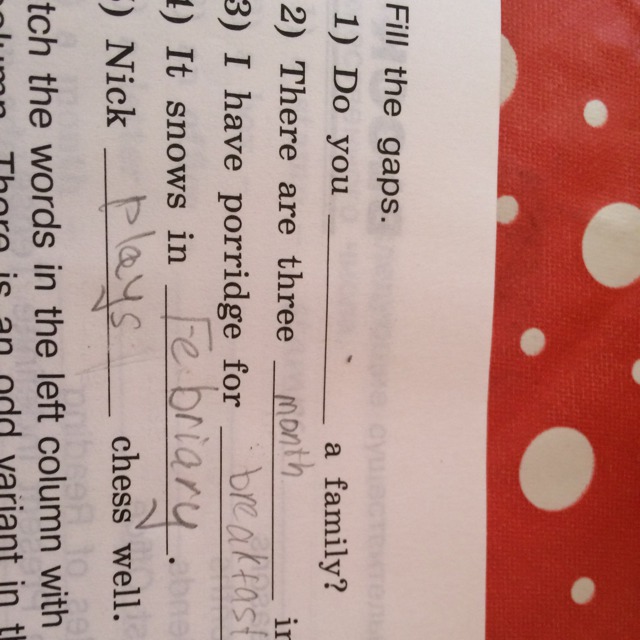 Fill the gaps.
1) Do you ____ a family?
2) There are three month in
3) I have porridge for breakfast
4) It snows in Febriary.
5) Nick plays chess well.
tch the words in the left column with
There is an odd variant in